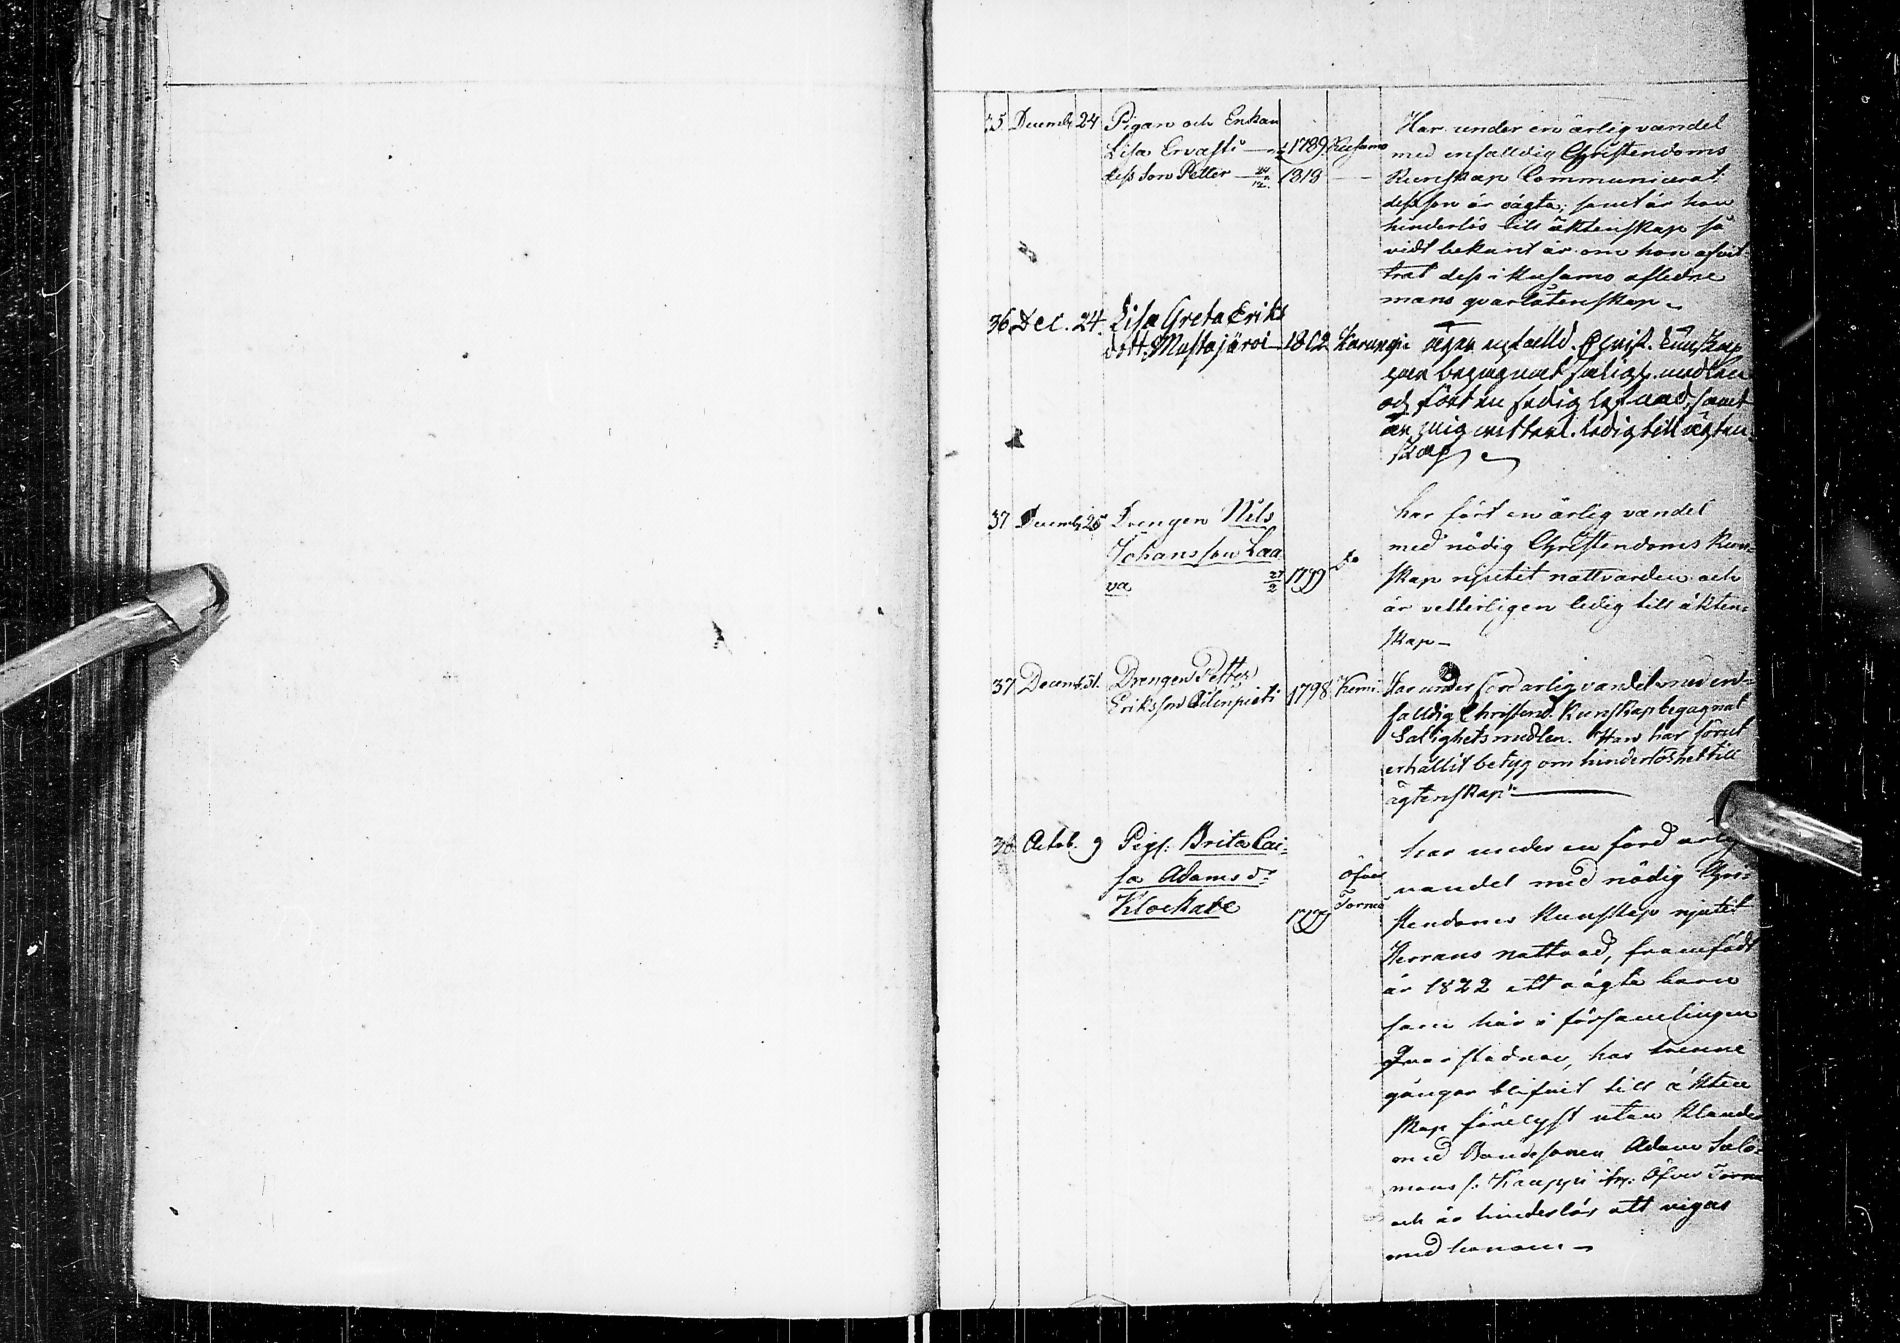 35 Decemb. 24 Pigan och Enkan
Lisa Ervasti 1789 Kusamo
dess son Petter 24/12 1818
Har under en ärlig vandel
med enfalldig Christendoms
Kunskap Communicerat
dess son är oägta; samt är hon
hinderlös till äktenskap så
vidt bekant är om hon afvit
trat dess i Kusamo afledne
mans qvarlåtenskap
36 Dec. 24. Lisa Greta Eriks
dott. Mustajärvi 1802 Karungi
äger enfalld. Christ. Kunskap
har begagnat salig. medlen
och fört en sedig lefnad, samt
är mig vitterl. ledig till ägten
skap
37 Decemb. 25 Drengen Nils
Johansson Laa
va 27/2 1799 do
har fört en ärlig vandel
med nödig Christendoms Kun-
skap njutit nattvarden och
är vetterligen ledig till äkten-
skap
37 Decemb. 31. Drengen Petter
Eriksson 1798 Kemi
har under förd ärlig vandel med en-
falldig Christend. Kunskap begagnat
Salighetsmedlen. Han har förut
erhållit betyg om hinderlöshet till
ägtenskap
38 Octob. 9 Pig. Brita Cai-
sa Adamsdr
Klockare 1799
Öfver
Torneå
har under en förd ärlig
vandel med nödig Chri-
stendoms Kunskap njutit
Herrans nattvad, framfödt
år 1822 ett oägta barn
som här i församlingen
qvarstadnar, har trenne
gångor blifvit till äkten
skap förelyst utan klander
med Bondesonen Adam Salo-
mons s. Kauppi fr. Öfver Torneå
och är hinderlös att vigas
med honom